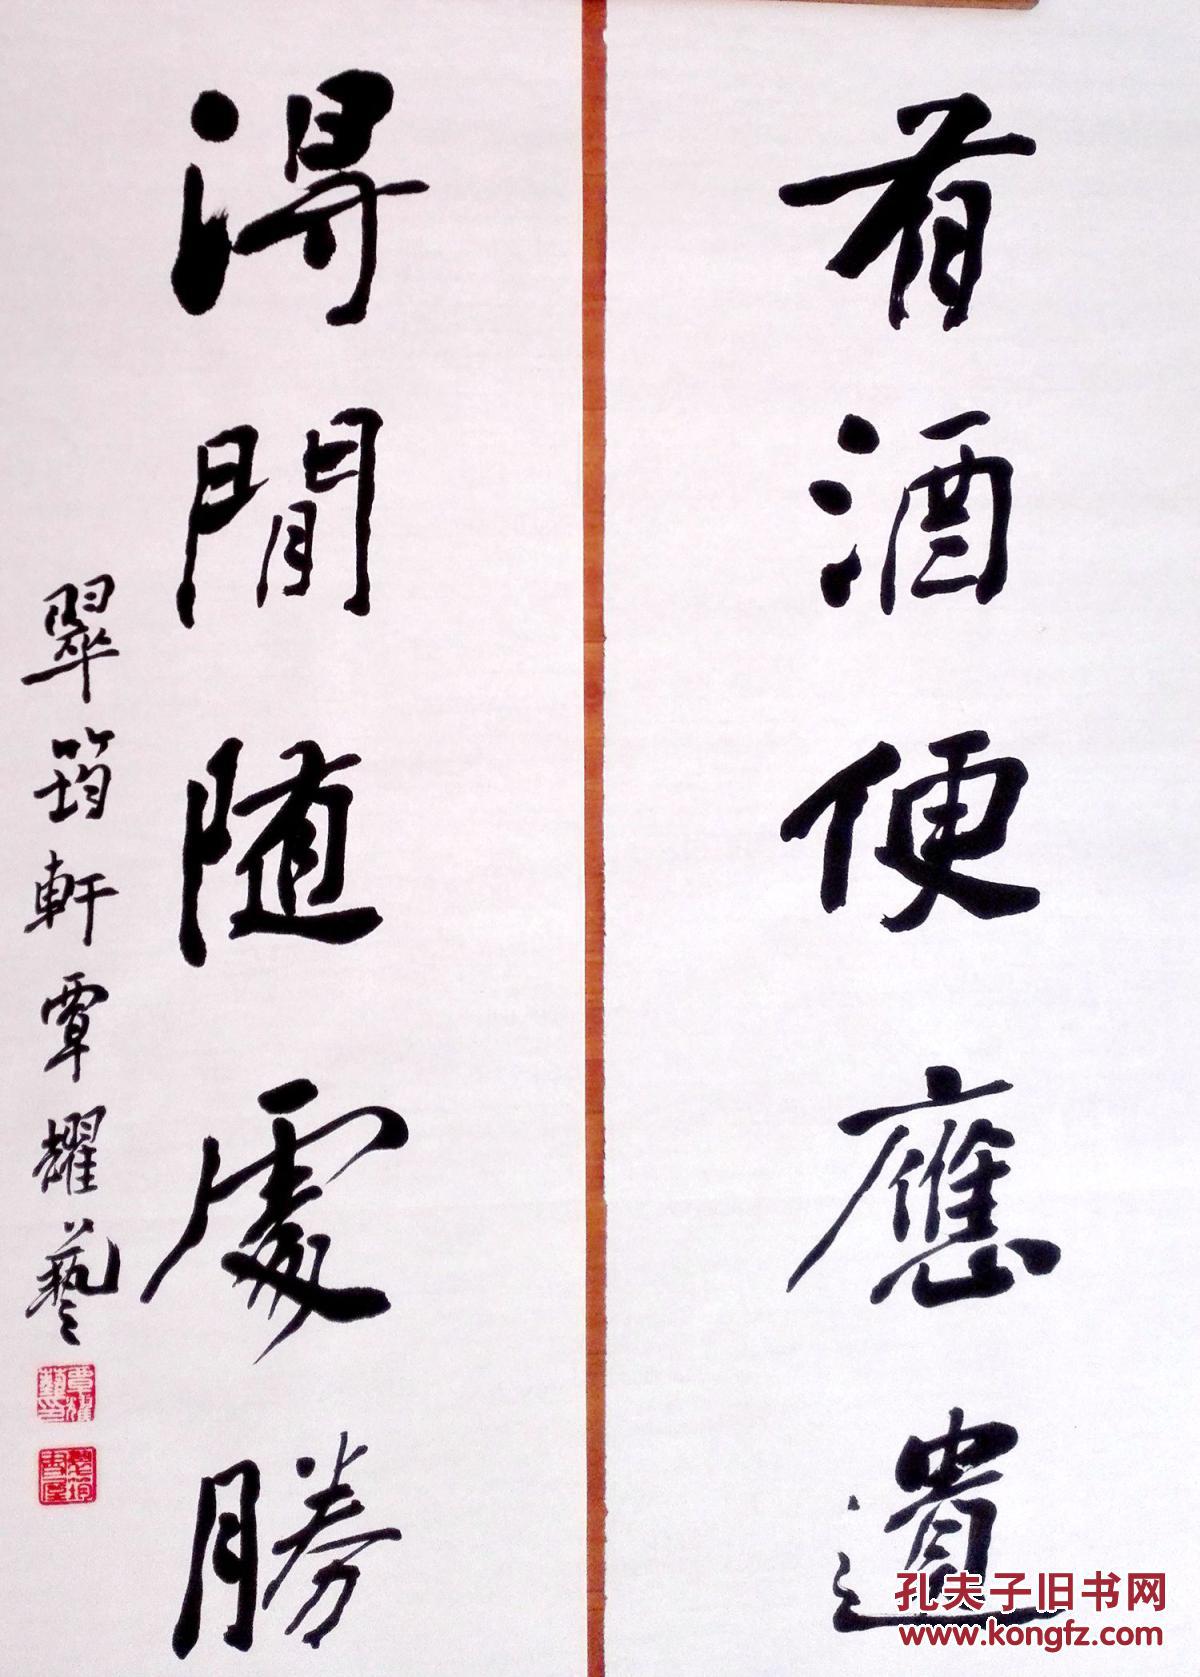 有酒便應遺
得閒随處勝
翠筠軒覃耀藝
孔夫子旧书网
www.kongfz.com